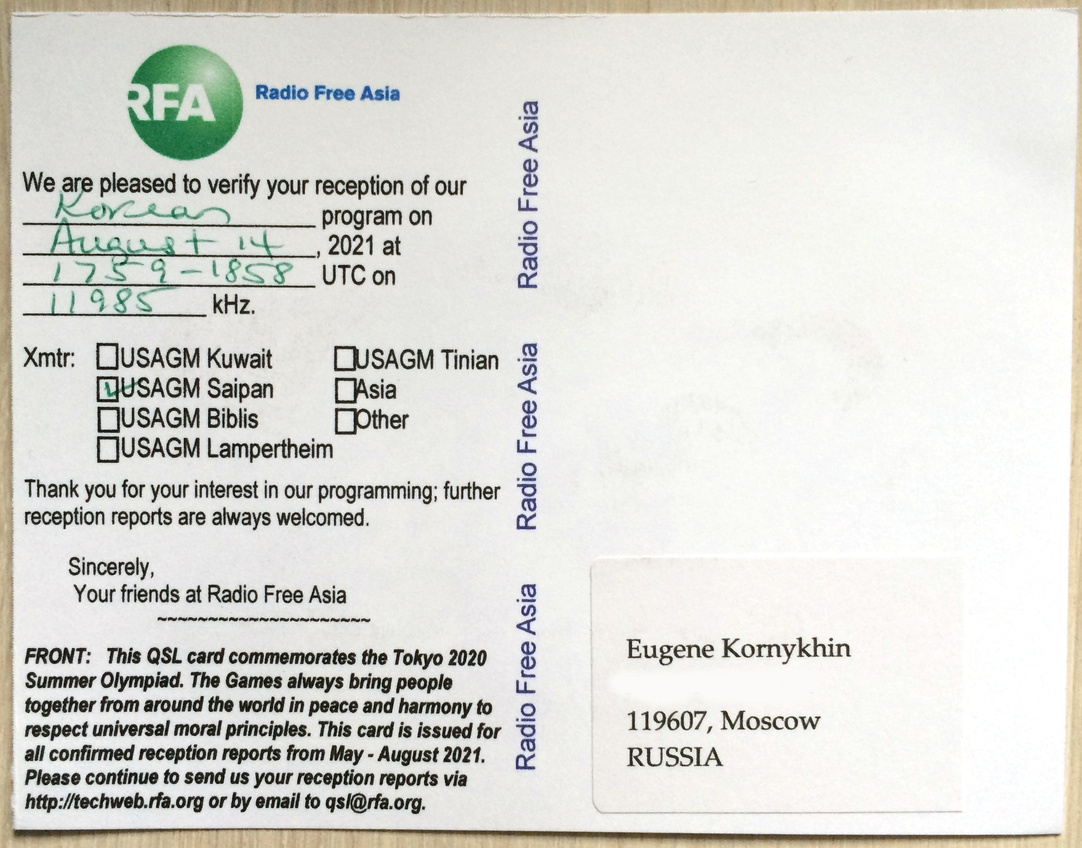 RFA
Radio Free Asia
We are pleased to verify your reception of our
Korean program on
August 14, 2021 at
1759-1858 UTC on
11985 kHz.
Xmtr: USAGM Kuwait USAGM Tinian
USAGM Saipan Asia
USAGM Biblis Other
USAGM Lampertheim
Thank you for your interest in our programming; further
reception reports are always welcomed.
Sincerely,
Your friends at Radio Free Asia
~~~~~~~~~~~~~~~~~~~~~
FRONT: This QSL card commemorates the Tokyo 2020
Summer Olympiad. The Games always bring people
together from around the world in peace and harmony to
respect universal moral principles. This card is issued for
all confirmed reception reports from May - August 2021.
Please continue to send us your reception reports via
http://techweb.rfa.org or by email to qsl@rfa.org.
Radio Free Asia
Radio Free Asia
Radio Free Asia
Eugene Kornykhin
119607, Moscow
RUSSIA